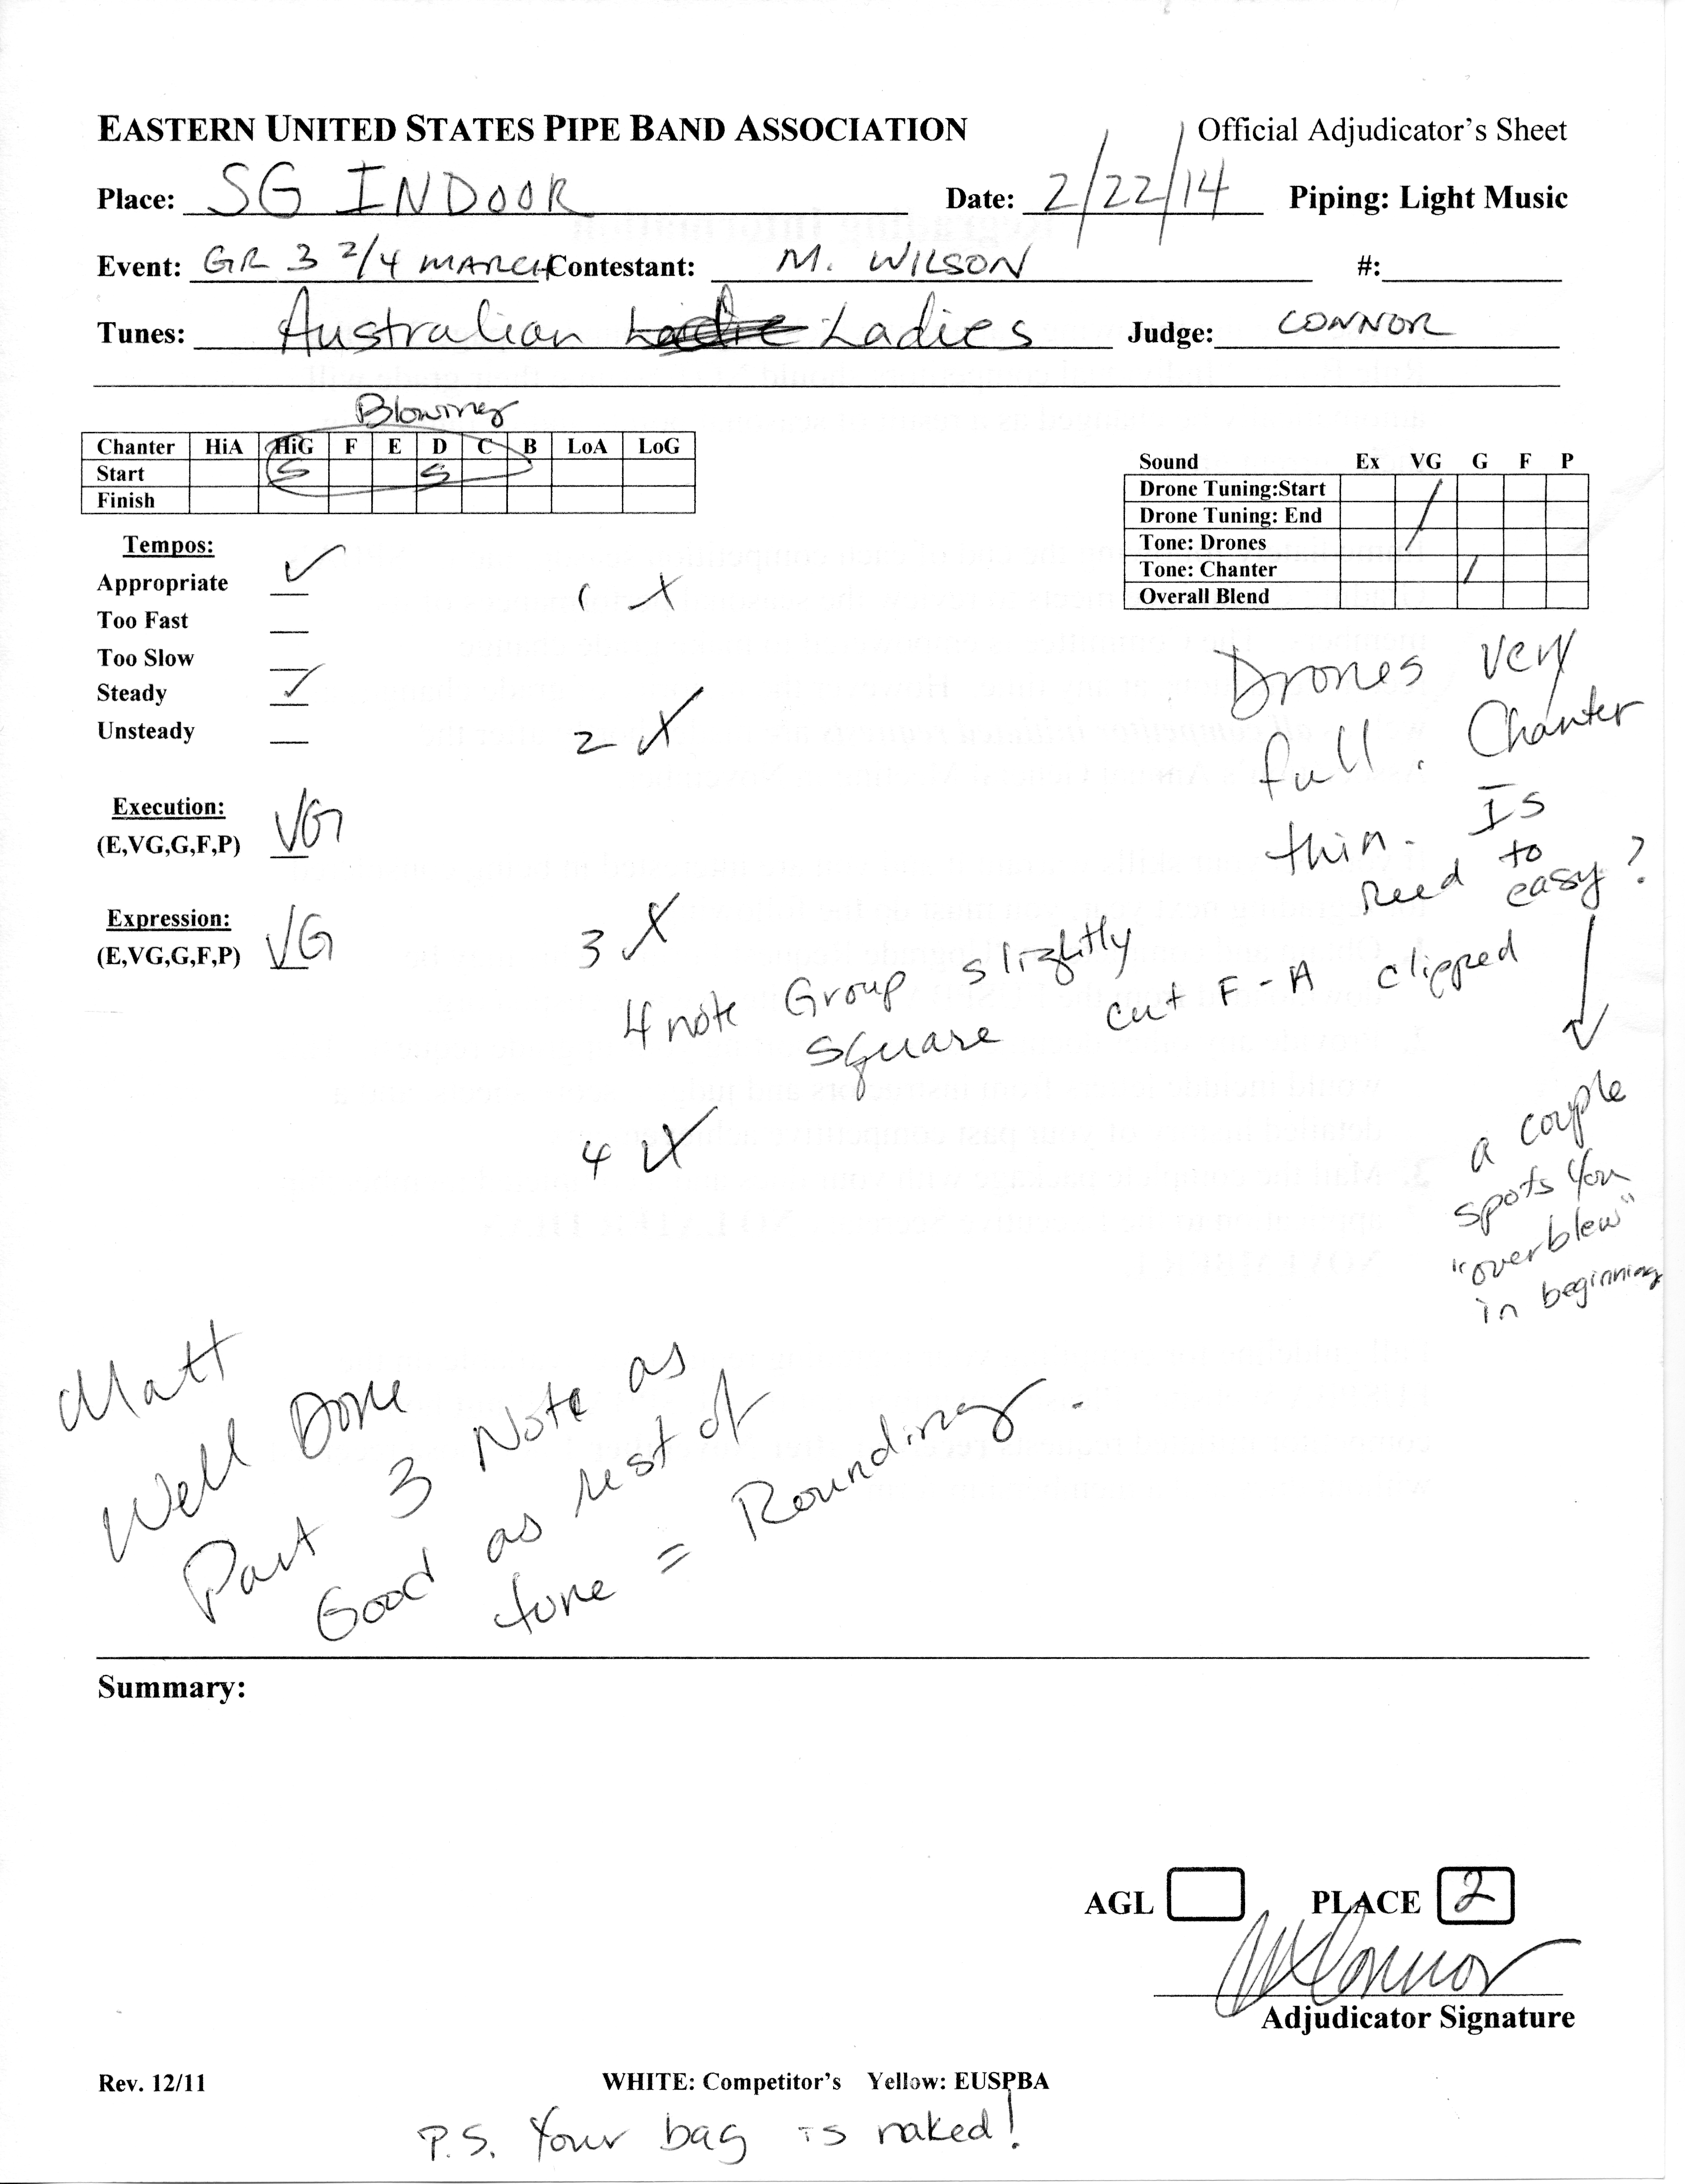 EASTERN UNITED STATES PIPE BAND ASSOCIATION Official Adjudicator's Sheet
Place: SG INDOOR Date: 2/22/14 Piping: Light Music
Event: GR 3 2/4 MARCH Contestant: M. WILSON #:
Tunes: Australian Ladie Ladies Judge: CONNOR
Blowing
Chanter HiA HiG F E D C B LoA LoG
Start S S
Finish
Sound Ex VG G F P
Drone Tuning:Start
Drone Tuning: End /
Tone: Drones
Tone: Chanter /
Overall Blend
Tempos:
Appropriate ✓
Too Fast
Too Slow
Steady ✓
Unsteady
Execution:
(E,VG,G,F,P) VG
Expression:
(E,VG,G,F,P) VG
1
2
3
4 note Group slightly
square cut F - A clipped
4
Drones very
full. Chanter
thin. Is
Reed to
easy?
a couple
spots you
"overblew"
in beginning
Matt
Well Done
Part 3 Note as
Good as rest of
tune = Rounding.
Summary:
AGL PLACE 2
Connor
Adjudicator Signature
Rev. 12/11 WHITE: Competitor's Yellow: EUSPBA
P.S. Your bag is naked!